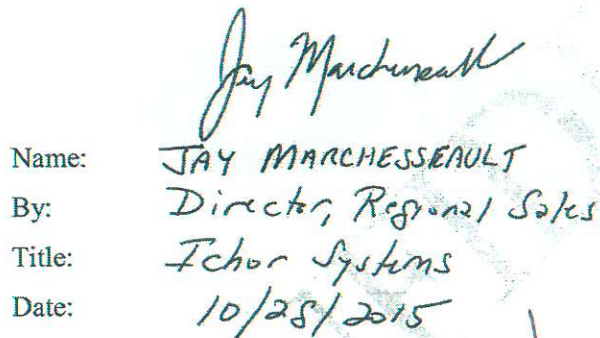 Jay Marchesseault
Name: JAY MARCHESSEAULT
By: Director, Regional Sales
Title: Ichor Systems
Date: 10/28/2015